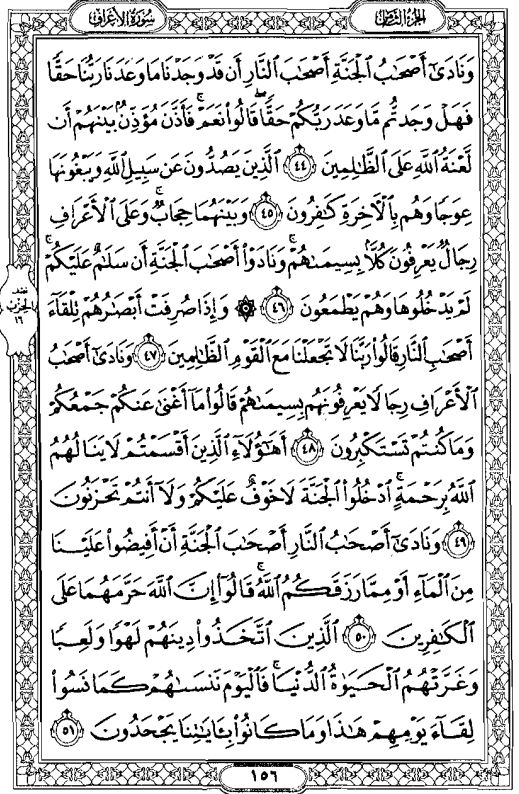 سُورَةُ الأَعْرَافِ
الجُزْءُ الثَّامِنُ
وَنَادَىٰٓ أَصْحَٰبُ الْجَنَّةِ أَصْحَٰبَ النَّارِ أَن قَدْ وَجَدْنَا مَا وَعَدَنَا رَبُّنَا حَقًّا
فَهَلْ وَجَدتُّم مَّا وَعَدَ رَبُّكُمْ حَقًّا قَالُوا۟ نَعَمْ ۚ فَأَذَّنَ مُؤَذِّنٌۢ بَيْنَهُمْ أَن
لَّعْنَةُ اللَّهِ عَلَى الظَّٰلِمِينَ ٤٤ الَّذِينَ يَصُدُّونَ عَن سَبِيلِ اللَّهِ وَيَبْغُونَهَا
عِوَجًا وَهُم بِالْءَاخِرَةِ كَٰفِرُونَ ٤٥ وَبَيْنَهُمَا حِجَابٌ ۚ وَعَلَى الْأَعْرَافِ
رِجَالٌ يَعْرِفُونَ كُلًّۢا بِسِيمَىٰهُمْ ۚ وَنَادَوْا۟ أَصْحَٰبَ الْجَنَّةِ أَن سَلَٰمٌ عَلَيْكُمْ ۚ
لَمْ يَدْخُلُوهَا وَهُمْ يَطْمَعُونَ ٤٦ ۞ وَإِذَا صُرِفَتْ أَبْصَٰرُهُمْ تِلْقَآءَ
نصف
الحزب
١٦
أَصْحَٰبِ النَّارِ قَالُوا۟ رَبَّنَا لَا تَجْعَلْنَا مَعَ الْقَوْمِ الظَّٰلِمِينَ ٤٧ وَنَادَىٰٓ أَصْحَٰبُ
الْأَعْرَافِ رِجَالًا يَعْرِفُونَهُم بِسِيمَىٰهُمْ قَالُوا۟ مَآ أَغْنَىٰ عَنكُمْ جَمْعُكُمْ
وَمَا كُنتُمْ تَسْتَكْبِرُونَ ٤٨ أَهَٰٓؤُلَآءِ الَّذِينَ أَقْسَمْتُمْ لَا يَنَالُهُمُ
اللَّهُ بِرَحْمَةٍ ۚ ادْخُلُوا۟ الْجَنَّةَ لَا خَوْفٌ عَلَيْكُمْ وَلَآ أَنتُمْ تَحْزَنُونَ
٤٩ وَنَادَىٰٓ أَصْحَٰبُ النَّارِ أَصْحَٰبَ الْجَنَّةِ أَنْ أَفِيضُوا۟ عَلَيْنَا
مِنَ الْمَآءِ أَوْ مِمَّا رَزَقَكُمُ اللَّهُ ۚ قَالُوٓا۟ إِنَّ اللَّهَ حَرَّمَهُمَا عَلَى
الْكَٰفِرِينَ ٥٠ الَّذِينَ اتَّخَذُوا۟ دِينَهُمْ لَهْوًا وَلَعِبًا
وَغَرَّتْهُمُ الْحَيَوٰةُ الدُّنْيَا ۚ فَالْيَوْمَ نَنسَىٰهُمْ كَمَا نَسُوا۟
لِقَآءَ يَوْمِهِمْ هَٰذَا وَمَا كَانُوا۟ بِـَٔايَٰتِنَا يَجْحَدُونَ ٥١
١٥٦